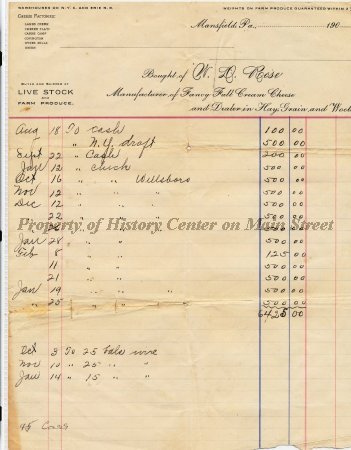 WAREHOUSES ON N.Y.C. AND ERIE R.R.
WEIGHTS ON FARM PRODUCE GUARANTEED WITHIN
CHEESE FACTORIES:
Mansfield, Pa., 190
BUYER AND SHIPPER OF
LIVE STOCK
AND
FARM PRODUCE.
Bought of W. D. Rose
Manufacturer of Fancy Full Cream Cheese
and Dealer in Hay, Grain, and Wool
Aug 18 To cash 100 00
" " N.Y. draft 500 00
Sept 22 " Cash 200 00
Jan 12 " check 500 00
Oct 16 " " Wellsboro 500 00
Nov 12 " " " 500 00
Dec 12 " " " 500 00
22 " " " 500 00
Property of History Center on Main Street
Jan 28 " " " 500 00
Feb 8 " " " 125 00
11 " " " 500 00
21 " " " 500 00
Jan 19 " " " 500 00
" 25 " " " 500 00
6425 00
Oct 3 To 25 bale wire
Nov 10 " 25 " "
Jan 14 " 15 " "